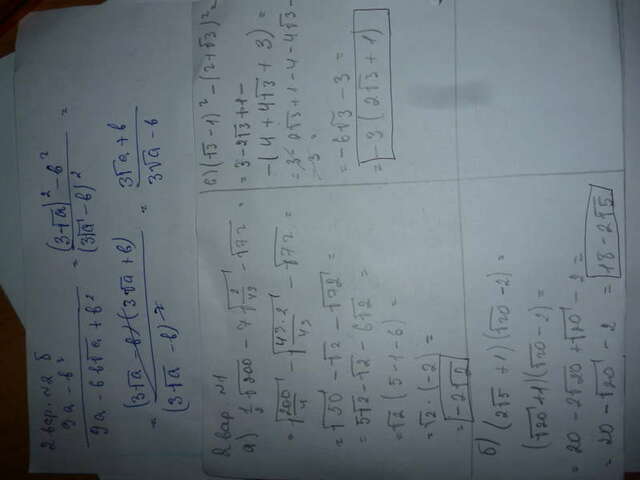 2 вар. №2 б
(9a - b²)/(9a - 6b√a + b²) = ((3√a)² - b²)/(3√a - b)² =
= (3√a - b)(3√a + b)/(3√a - b)² = (3√a + b)/(3√a - b)
2 вар. №1
а) 1/2 √200 - 7√(2/49) - √72 =
= √(200/4) - √(49·2/49) - √72 =
= √50 - √2 - √72 =
= 5√2 - √2 - 6√2 =
= √2 (5 - 1 - 6) =
= √2 · (-2) =
= -2√2
б) (2√5 + 1)(√20 - 2) =
(√20 + 1)(√20 - 2) =
= 20 - 2√20 + √20 - 2 =
= 20 - √20 - 2 = 18 - 2√5
в) (√3 - 1)² - (2 + √3)² =
= 3 - 2√3 + 1 -
- (4 + 4√3 + 3) =
= 3 - 2√3 + 1 - 4 - 4√3 -
- 3 =
= -6√3 - 3 =
= -3 (2√3 + 1)